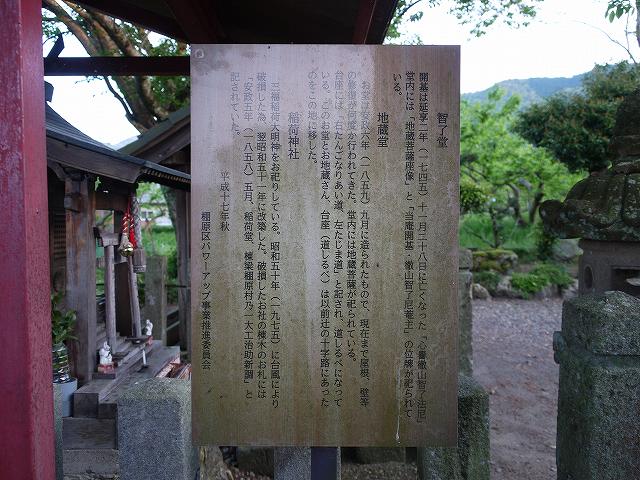 智了堂
開基は延享二年（一七四五）十一月二十八日に亡くなった「心書徹山智了法尼」
堂内には「地蔵菩薩座像」と「当庵開基・徹山智了尼菴主」の位牌が祀られて
いる。
地蔵堂
お堂は安政六年（一八五九）九月に造られたもので、現在まで屋根、壁等
の修復が何度か行われてきた。堂内には地蔵菩薩が祀られている。
台座には「右たんごなりあい道、左たじま道」と記され、道しるべになって
いる。このお堂とお地蔵さん、台座（道しるべ）は以前辻の十字路にあった
のをこの地に移した。
稲荷神社
三福稲荷大明神をお祀りしている。昭和五十年（一九七五）に台風により
破損した為、翌昭和五十一年に改築した。破損したお社の棟木のお札には
「安政五年（一八五八）五月、稲荷堂、棟梁棚原村乃一大工治助新調」と
記されていた。
平成十七年秋
棚原区パワーアップ事業推進委員会